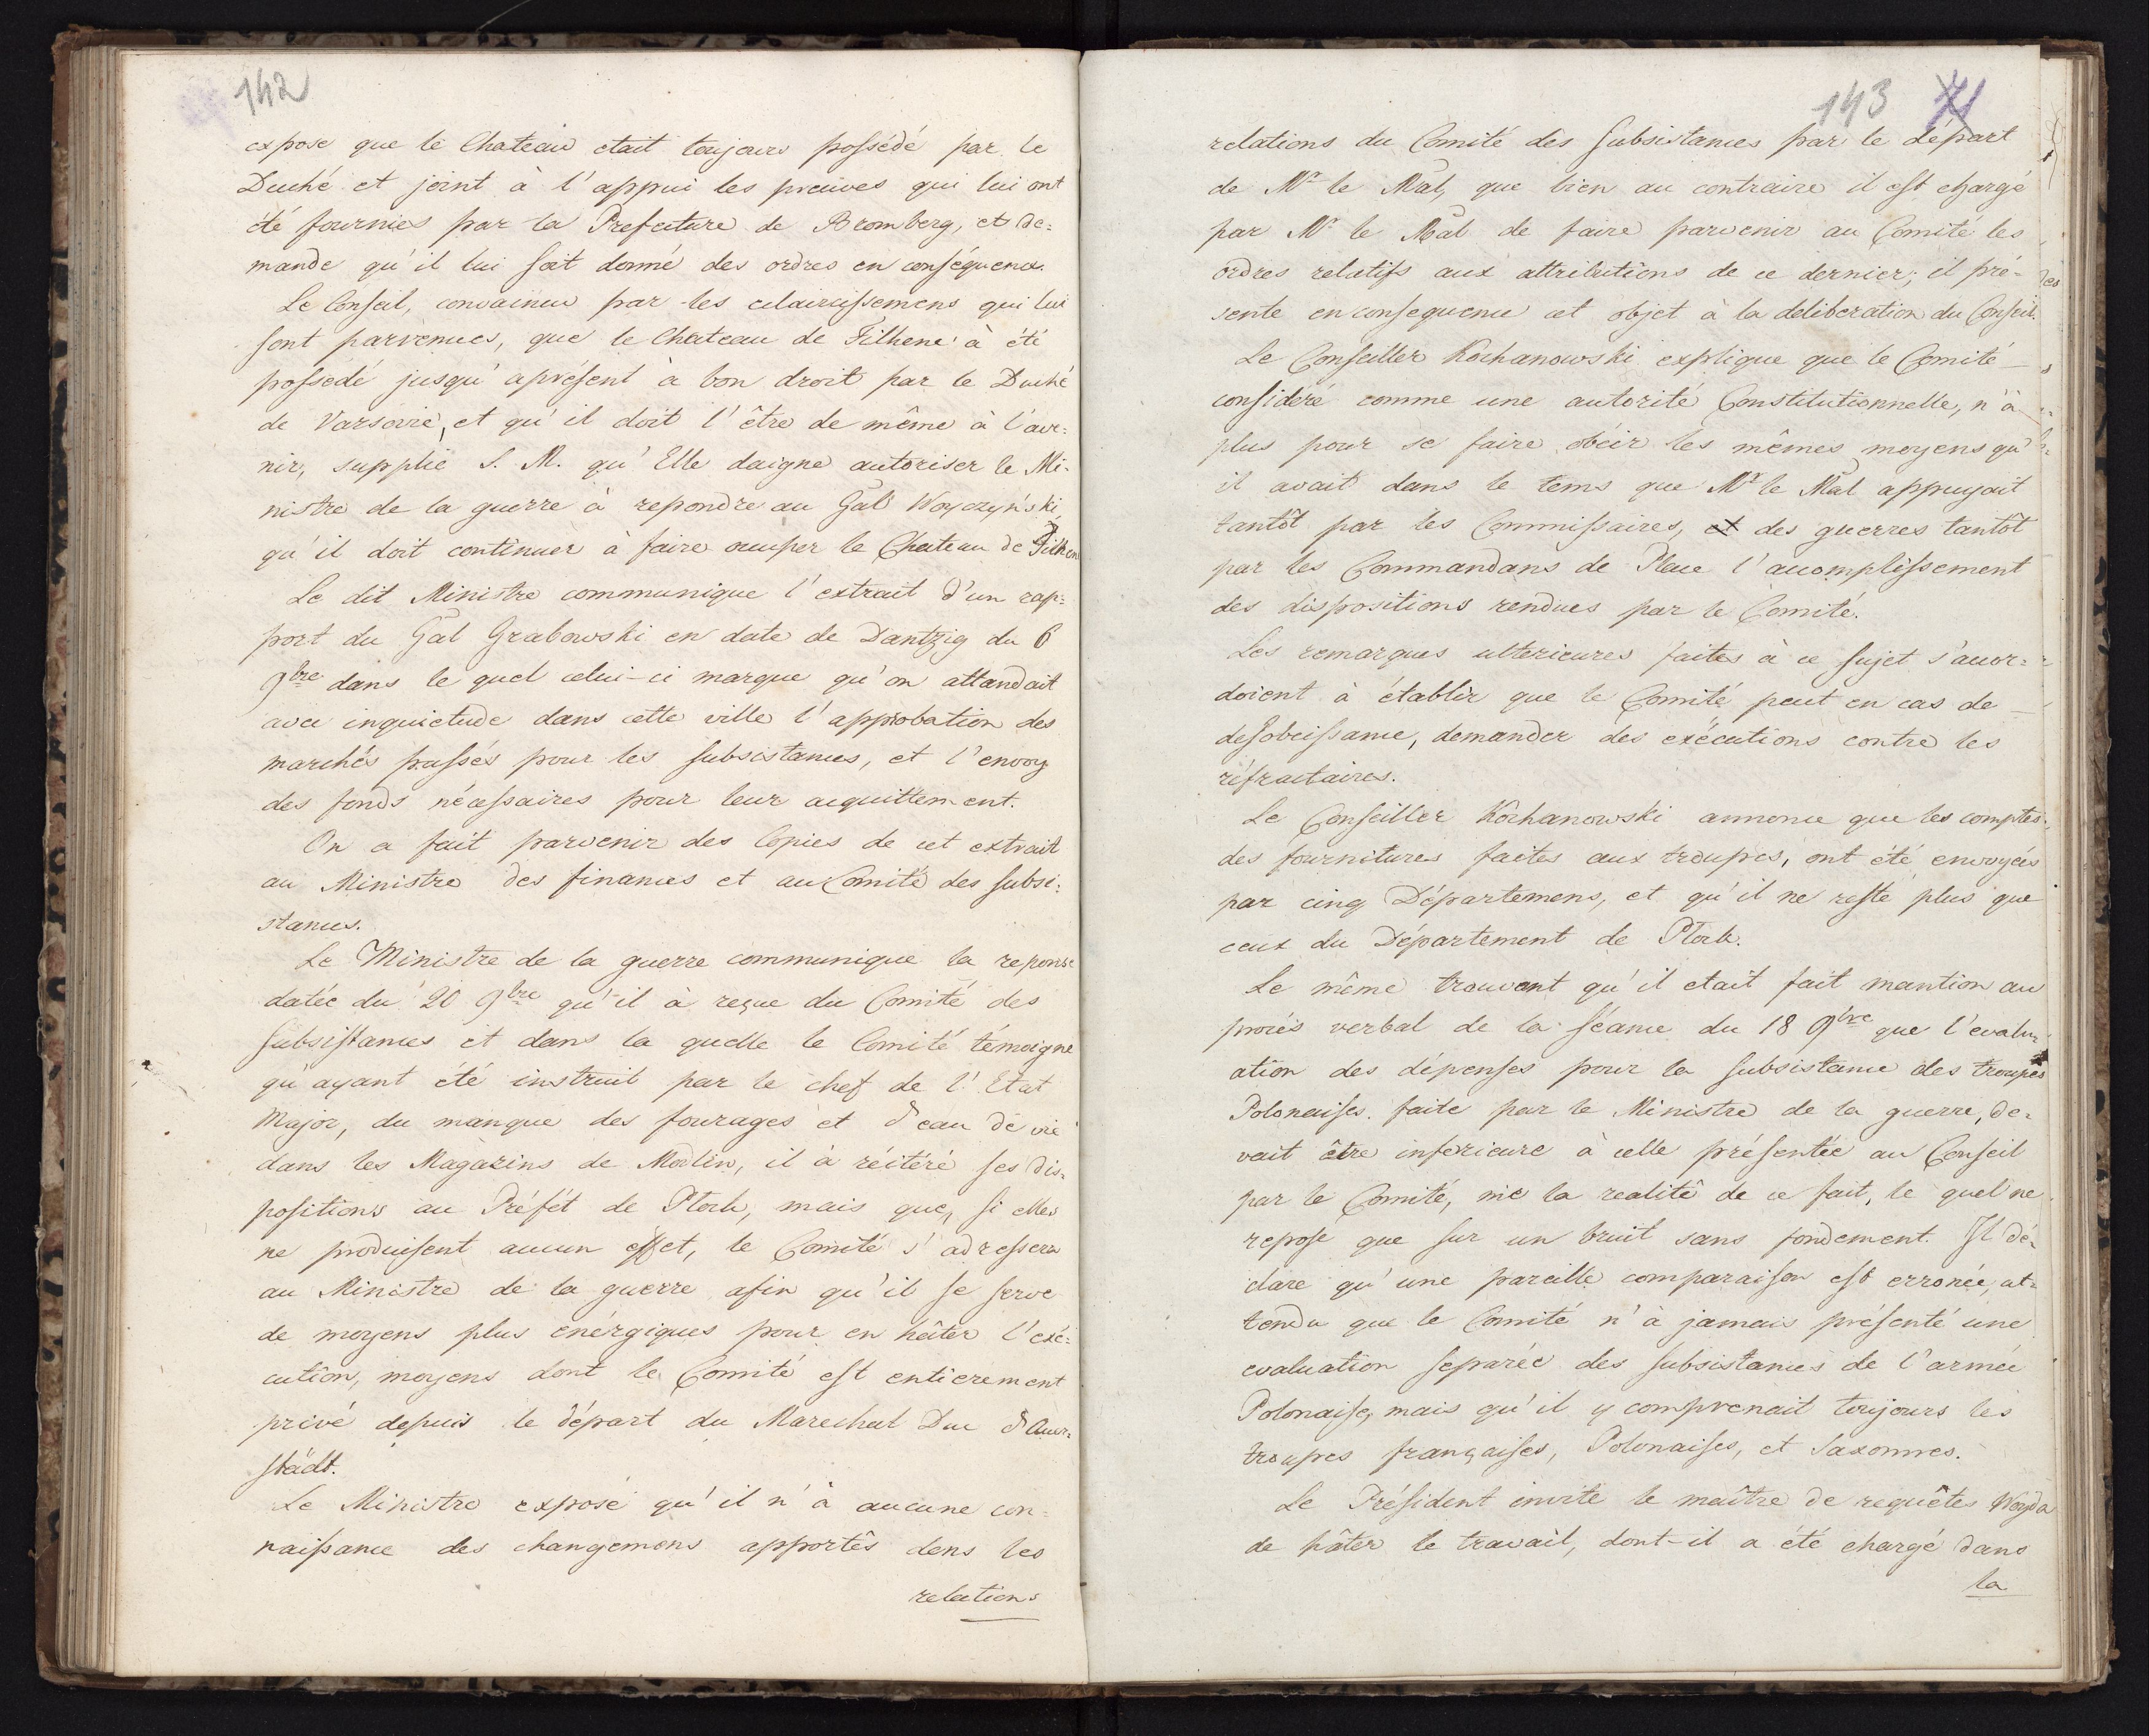 142
expose que le Chateau etait toujours possédé par le
Duché et joint à l'appui les preuves qui lui ont
été fournies par la Prefecture de Bromberg, et de=
mande qu'il lui soit donné des ordres en conséquence.
Le Conseil, convaincu par les eclaircissemens qui lui
sont parvenues, que le Chateau de Filhene à été
possedé jusqu'aprésent à bon droit par le Duché
de Varsovie, et qu'il doit l'être de même à l'ave=
nir, supplie S. M. qu'Elle daigne autoriser le Mi-
nistre de la guerre à repondre au Gal Woyczyński,
qu'il doit continuer à faire occuper le Chateau de Filhen
Le dit Ministre communique l'extrait d'un rap=
port du Gal Grabowski en date de Dantzig du 6
9bre dans le quel celui-ci marque qu'on attandait
avec inquietude dans cette ville l'approbation des
marchés passés pour les subsistances, et l'envoy
des fonds nécessaires pour leur acquittement.
On a fait parvenir des Copies de cet extrait
au Ministre des finances et au Comité des subsi=
stances.
Le Ministre de la guerre communique la reponse
datée du 20 9bre qu'il à reçue du Comité des
Subsistances et dans la quelle le Comité témoigne
qu'ayant été instruit par le chef de l'Etat
Major, du manque des fourages et d'eau de vie
dans les Magazins de Modlin, il à réitéré ses dis=
positions au Préfét de Plock, mais que, si elles
ne produisent aucun effet, le Comité s'adressera
au Ministre de la guerre afin qu'il se serve
de moyens plus énérgiques pour en hâter l'exé=
cution, moyens dont le Comité est entierement
privé depuis le départ du Marechal Duc d'Auer=
städt.
Le Ministre exposé qu'il n'à aucune con=
naissance des changemens apportês dens les
relations
143 71
relations du Comité des Subsistances par le départ
de Mr le Mal, que bien au contraire il est chargé
par Mr le Mal de faire parvenir au Comité les
ordres relatifs aux attributions de ce dernier; il pré-
sente en consequence cet objet à la deliberation du Conseil.
Le Conseiller Kochanowski explique que le Comité
considéré comme une autorité Constitutionnelle, n'à
plus pour se faire obéir les mêmes moyens qu'
il avait dans le tems que Mr le Mal appuyait
tantôt par les Commissaires, et des guerres tantôt
par les Commandans de Place l'accomplissement
des dispositions rendues par le Comité.
Les remarques ulterieures faites à ce sujet s'accor=
doient à établir que le Comité peut en cas de
desobeissance, demander des exécutions contre les
réfractaires.
Le Conseiller Kochanowski annonce que les comptes
des fournitures faites aux troupes, ont été envoyées
par cinq Départemens, et qu'il ne reste plus que
ceux du Département de Plock.
Le même trouvant qu'il etait fait mantion au
procés verbal de la séance du 18 9bre que l'evalu=
ation des dépenses pour la subsistance des troupes
Polonaises. faite par le Ministre de la guerre, de=
vait être inferieure à celle présentée au Conseil
par le Comité, nie la realité de ce fait, le quel ne
repose que sur un bruit sans fondement. Il dé=
clare qu'une pareille comparaison est erronée, at=
tendu que le Comité n'à jamais présenté une
evaluation separée des subsistances de l'armée
Polonaise, mais qu'il y comprenait toujours les
troupes françaises, Polonaises, et Saxonnes.
Le Président invite le maître de requêtes Woyda
de hâter le travail, dont-il a été chargé dans
la